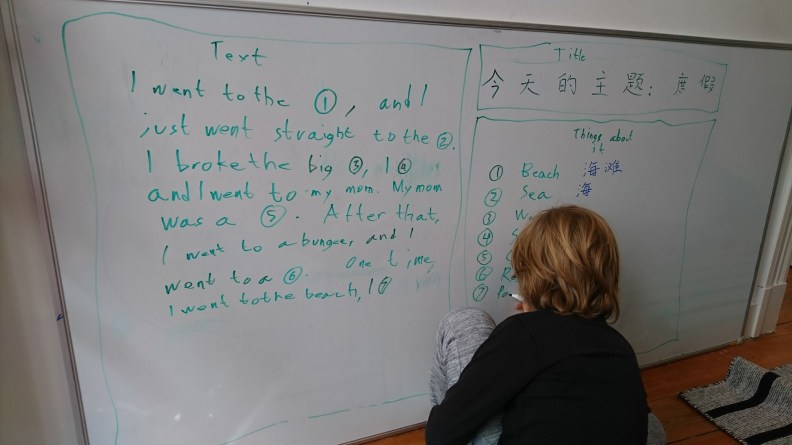 Text
I went to the ①, and I
just went straight to the ②.
I broke the big ③, I ④
and I went to my mom. My mom
was a ⑤. After that,
I went to a bungee, and I
went to a ⑥. One time,
I went to the beach, I ⑦
Title
今天的主题: 度假
Things about
it
① Beach 海滩
② Sea 海
③
④
⑤
⑥
⑦